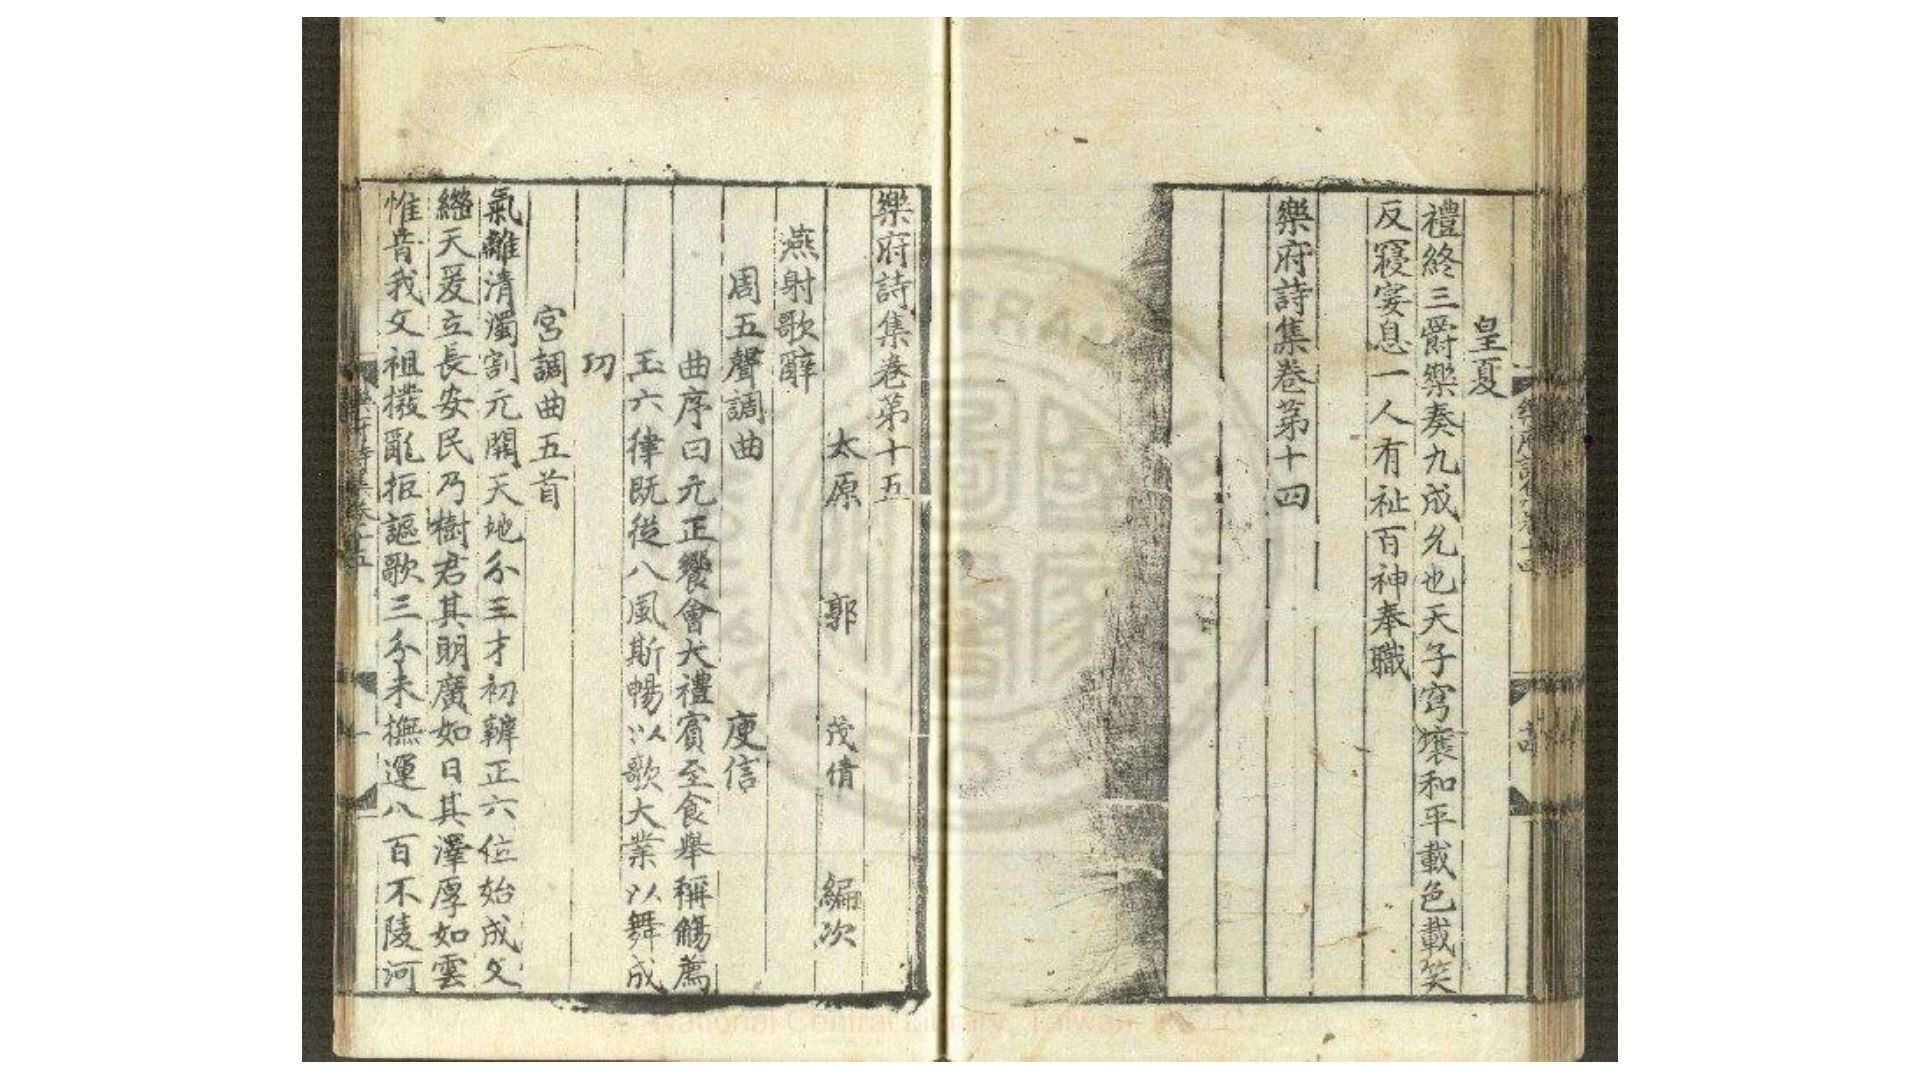 皇夏
禮終三爵樂奏九成允也天子穹壤和平載色載笑
反寢宴息一人有祉百神奉職
樂府詩集卷第十四
樂府詩集卷第十五
太原 郭 茂倩 編次
燕射歌辭
周五聲調曲 庾信
曲序曰元正饗會大禮賓至食舉稱觴薦
玉六律既從八風斯暢以歌大業以舞成
功
宮調曲五首
氣離清濁割元開天地分三才初辨正六位始成文
繼天爰立長安民乃樹君其明廣如日其澤厚如雲
惟昔我文祖撥亂拒謳歌三分未撫運八百不陵河
National Central Library, Taiwan